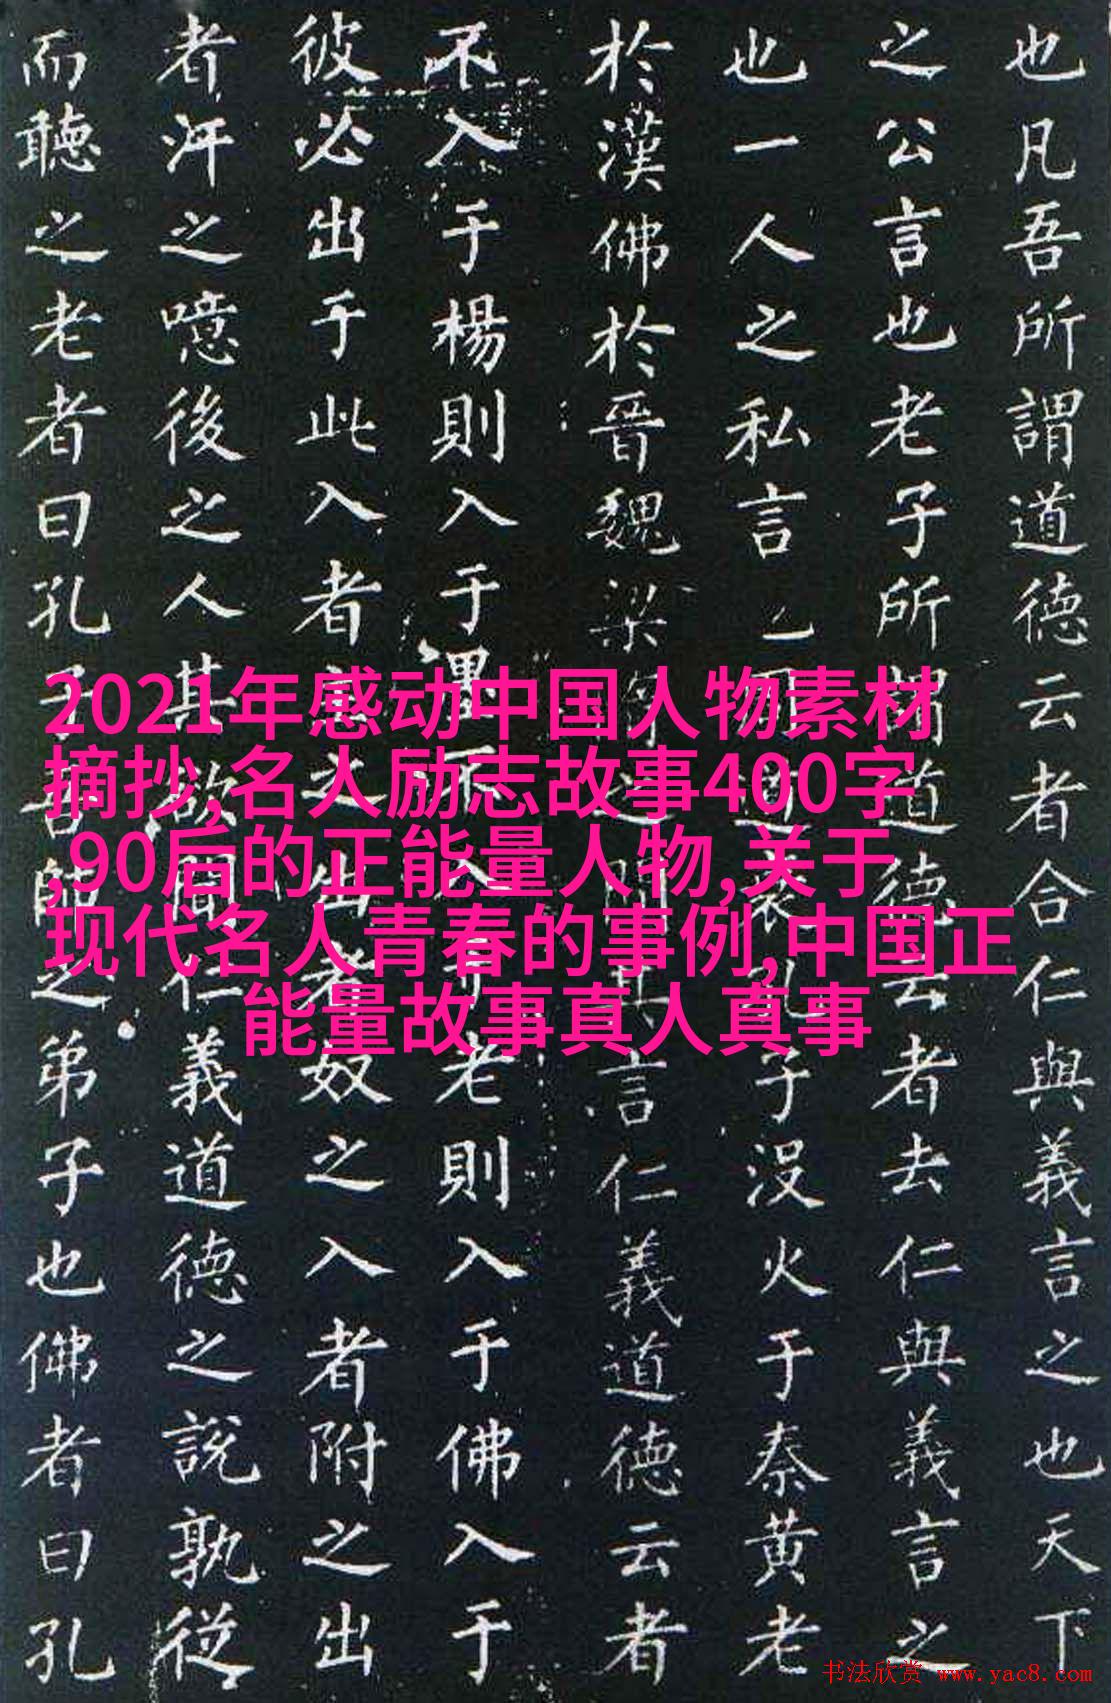 也凡吾所謂道德云者合仁與義言之也天下
之公言也老子所道德云者去仁與義言之
也一人之私言道衰孔子没火于秦黄老
於漢佛於晉魏梁之間其言仁義道德云者
不入于楊則入于墨不入于老則入于佛入于
彼必出于此入者之出者奴之入者附之出
者汙之噫後之人其欲聞仁義道德之說孰從
而聽之老者曰孔子吾師之弟子也佛者曰孔
2021年感动中国人物素材
摘抄,名人励志故事400字
,90后的正能量人物,关于
现代名人青春的事例,中国正
能量故事真人真事
书法欣赏 www.yac8.com